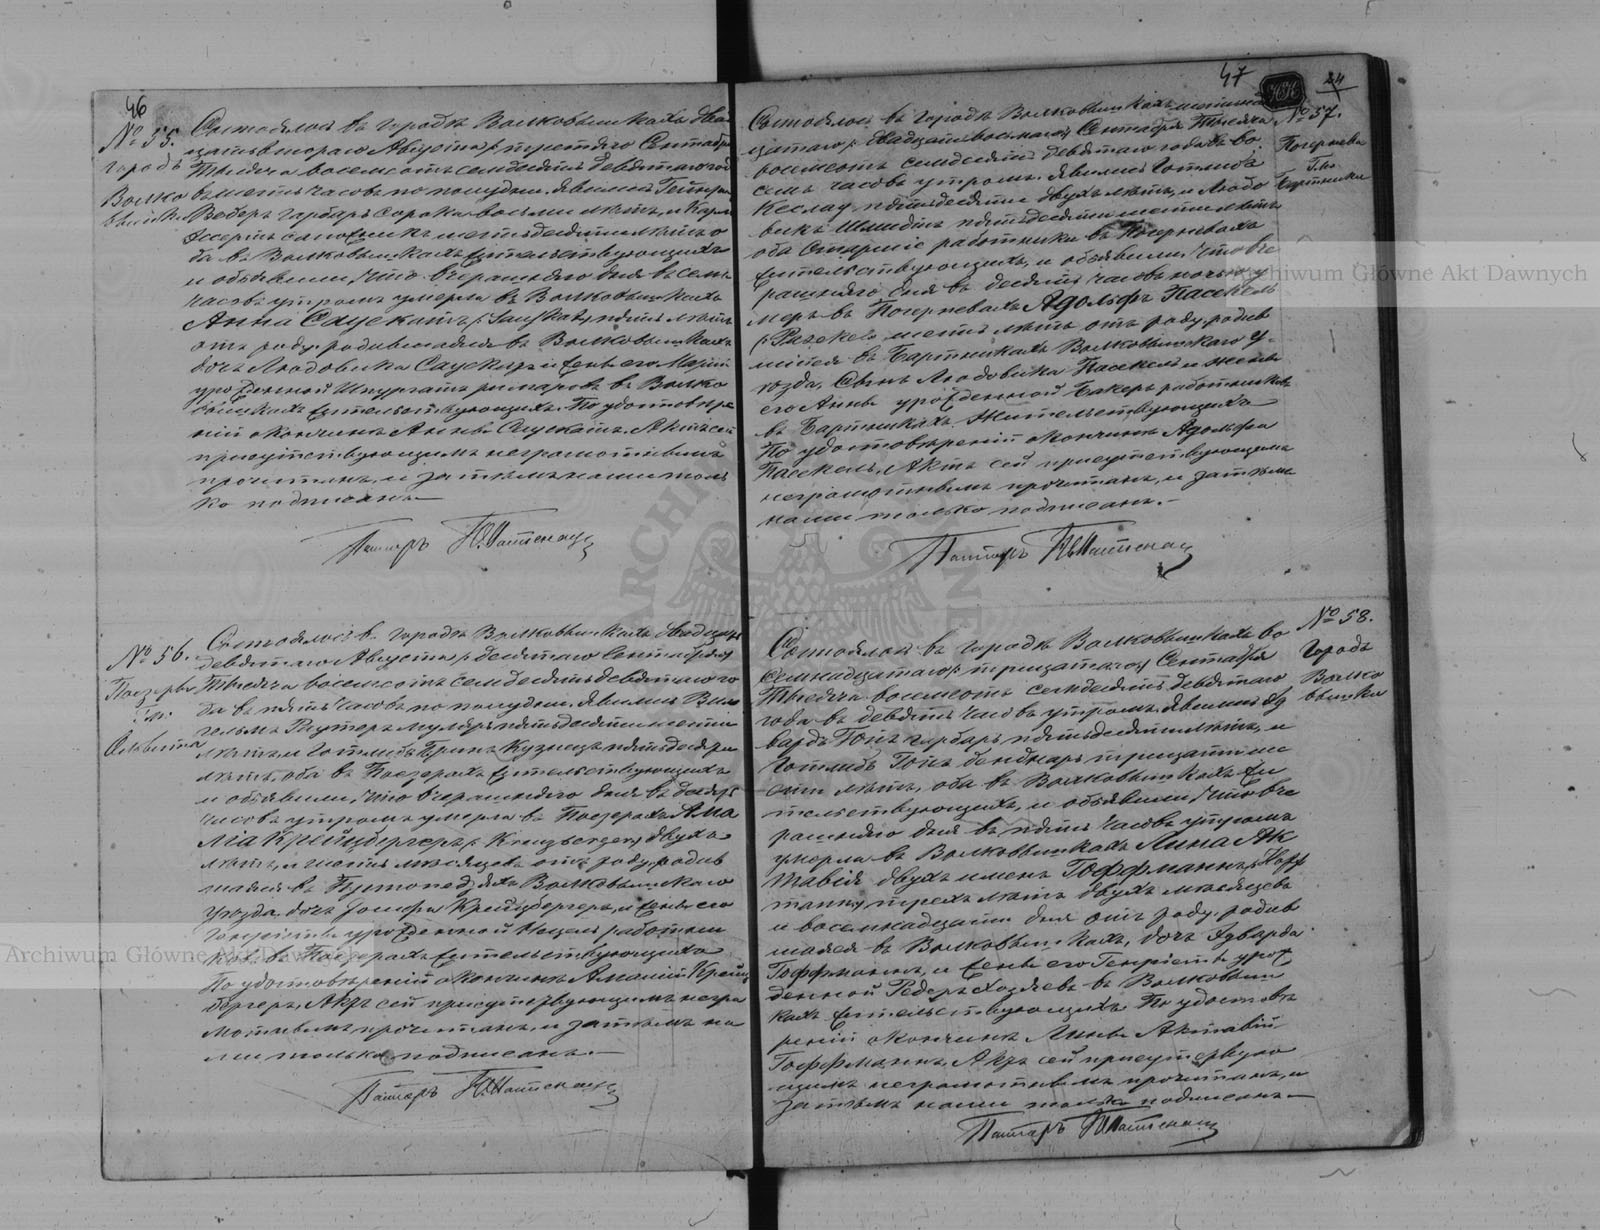 46
№ 55.
Городъ
Волко
вышки
Состоялось въ городѣ Волковышкахъ два
цать втораго Августа /: третяго Сентября
Тысяча восемсотъ семдесятъ девятаго года
въ шесть часовъ по полудни. Явились
Веберъ гарбаръ сорока восьми лѣтъ, и Карлъ
шестьдесяти лѣтъ о
ба въ Волковышкахъ жительствующихъ
и объявили, что вчерашняго дня въ семь
часовъ утромъ умерла въ Волковышкахъ
Анна Саускатъ /: Sauskat :/ пять лѣтъ
отъ роду, родившаяся въ Волковышкахъ
дочь Людовика Саускатъ и жены его
урожденной римаровъ въ Волко
вышкахъ жительствующихъ. По удостовѣре
ніи о кончинѣ Анны Саускатъ. Актъ сей
присутствующимъ неграмотнымъ
прочитанъ, и затѣмъ нами толь
ко подписанъ.
Пасторъ
№ 56.
Поезеры
Гм.
Ольвита
Состоялось въ городѣ Волковышкахъ двадцать
девятаго Августа /: десятаго Сентября :/
Тысяча восемсотъ семдесятъ девятаго го
да въ пять часовъ по полудни. Явились Виль
гельмъ пятьдесяти шести
лѣтъ и Готлибъ Кузнецъ пятьдесяти
лѣтъ, оба въ Поезерахъ жительствующихъ
и объявили, что вчерашняго дня въ десять
часовъ утромъ умерла въ Поезерахъ Ама
лія Крейцбергеръ /: Kreuzberger :/ двухъ
лѣтъ, и шесть мѣсяцевъ отъ роду, родив
шаяся въ Волковышскаго
уѣзда, дочь Іосифа Крейцбергеръ, и жены его
урожденной работни
ковъ въ Поезерахъ жительствующихъ
По удостовѣреніи о кончинѣ Амаліи Крейц
бергеръ, Актъ сей присутствующимъ негра
мотнымъ прочитанъ, и затѣмъ на
ми только подписанъ.
Пасторъ
47
24
№ 57.
Погернева
Гм.
Бартники
Состоялось въ городѣ Волковышкахъ
цатаго /: двадцать восьмаго :/ Сентября Тысяча
восемсотъ семдесятъ девятаго года въ во
семь часовъ утромъ. Явились Готлибъ
Кеслау пятьдесяти двухъ лѣтъ, и Людо
викъ Шмидтъ пятьдесяти шести лѣтъ
оба старшіе работники въ Погерневахъ
жительствующихъ, и объявили, что вче
рашняго дня въ десять часовъ ночью у
меръ въ Погерневахъ Адольфъ Пасекель
шесть лѣтъ отъ роду, родив
шійся въ Бартникахъ Волковышскаго у
ѣзда. Сынъ Людовика Пасекель и жены
его Анны урожденной Бекеръ работниковъ
въ Бартникахъ жительствующихъ
По удостовѣреніи о кончинѣ Адольфа
Пасекель, Актъ сей присутствующимъ
неграмотнымъ прочитанъ, и затѣмъ
нами только подписанъ.
Пасторъ
№ 58.
Городъ
Волко
вышки
Состоялось въ городѣ Волковышкахъ во
семнадцатаго /: тридцатаго :/ Сентября
Тысяча восемсотъ семдесятъ девятаго
года въ девять часовъ утромъ. Явились Эд
вардъ Гопъ гарбаръ пятьдесяти лѣтъ, и
Готлибъ Гопъ беднарь тридцати ше
сти лѣтъ, оба въ Волковышкахъ жи
тельствующихъ, и объявили, что вче
рашняго дня въ пять часовъ утромъ
умерла въ Волковышкахъ Лина Ак
тавія двухъ именъ Гоффманнъ /: Hoff
mann :/ трехъ лѣтъ двухъ мѣсяцевъ
и восемнадцати дня отъ роду, родив
шаяся въ Волковышкахъ, дочь Эдварда
Гоффманнъ, и жены его Генріеты урож
денной Редеръ хозяевъ въ Волковыш
кахъ жительствующихъ. По удостовѣ
реніи о кончинѣ Лины Актавіи
Гоффманнъ, Актъ сей присутствую
щимъ неграмотнымъ прочитанъ, и
затѣмъ нами только подписанъ.
Пасторъ
Archiwum Główne Akt Dawnych
Archiwum Główne Akt Dawnych